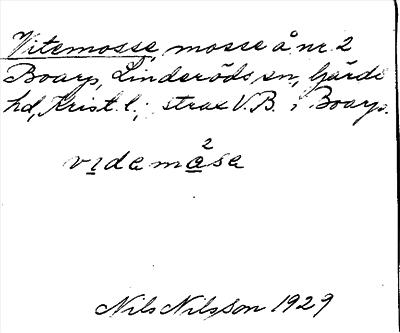 Vitemosse, mosse å nr 2
Boarp, Linderöds sn, Gärds
hd, Krist. l.; strax V.B. i Boarp.
vıdema²sa
Nils Nilsson 1929